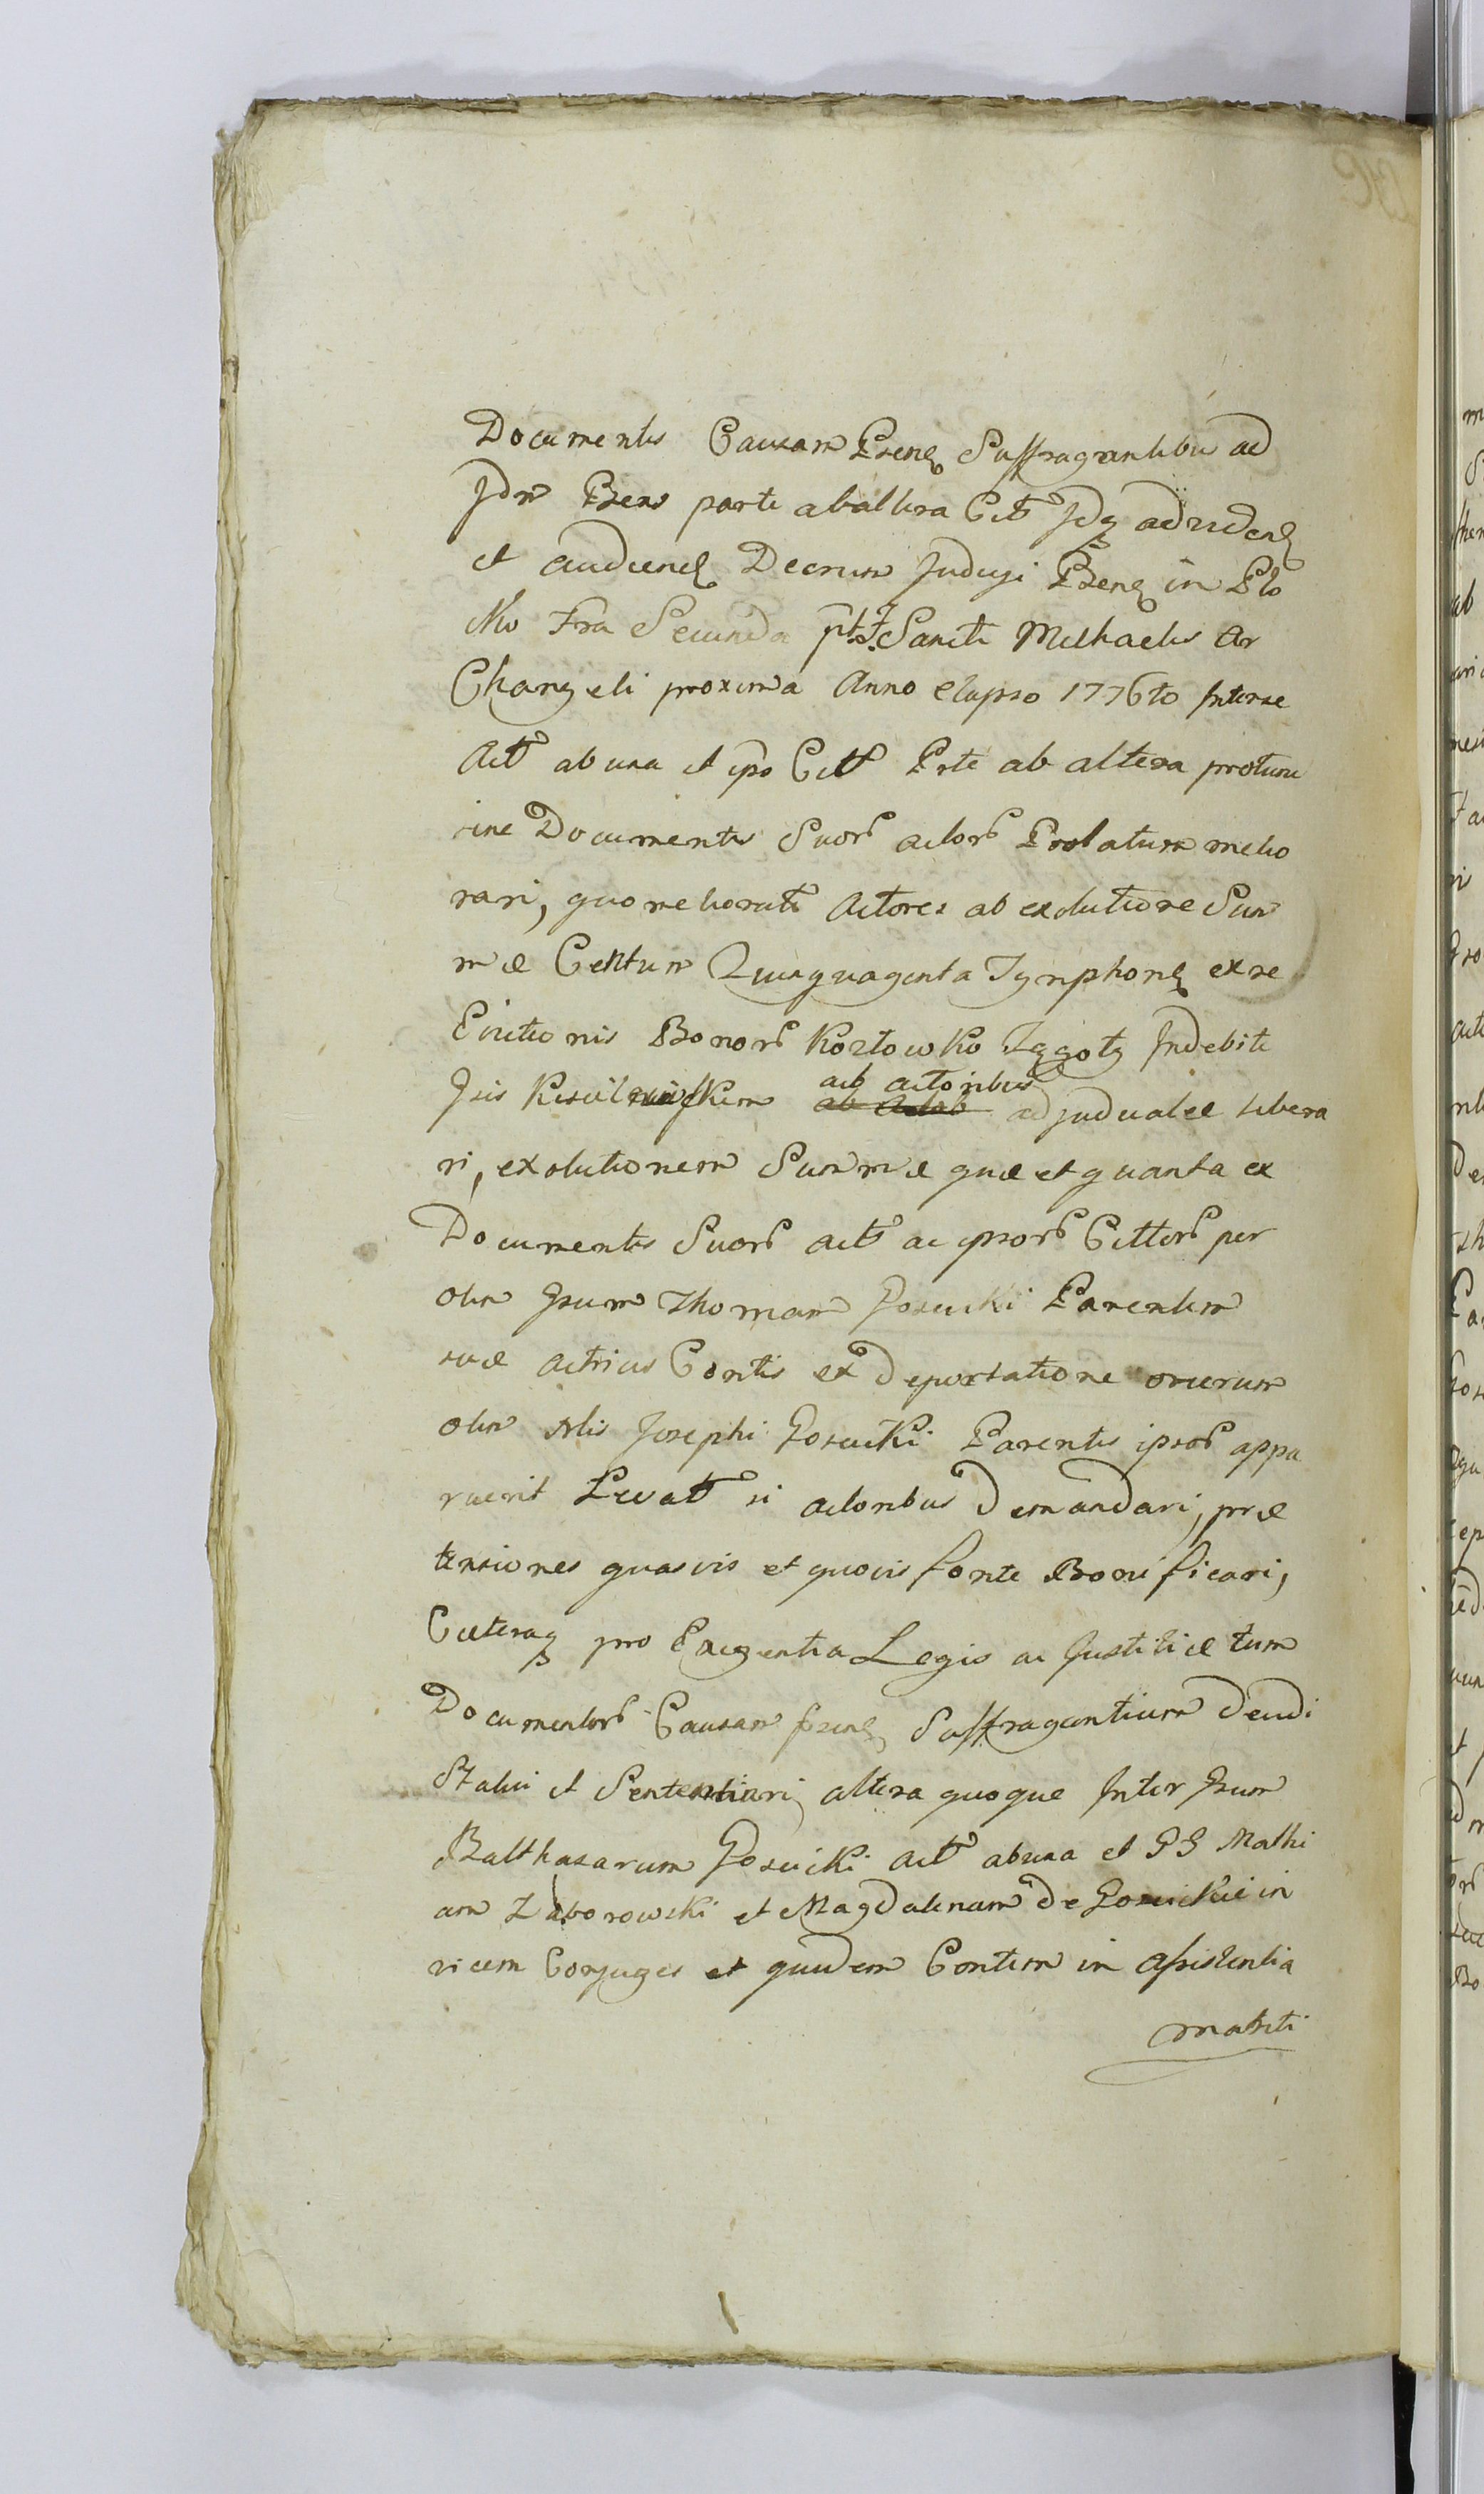 Documentis Causam Psen Suffragantibus ad
Jdm Bens parte ab altera Citt Jdq ad videnď
et audienď Decrum Judijs Psens in Plo
cko Fra Secunda p't f. Sancti Michaelis Ar
Changeli proxima Anno elapso 1776to Inter se
Act ab una et ipso Citt Prte ab altera
sine Documentis Suor actor Prolatum melio
rari, quo meliorato Actores ab exolutione Sum
mæ Centum Quinquaginta Tynphon ex re
Evictionis Bonor Kozłowko Indebite
Gsis ab actoribus ab Actob adjudicatæ libera
ri, exolutionem Summæ quæ et quanta ex
Documentis Suor act ac ipsor Cittor per
olim Gsum Thomam Gosicki Parentem
suæ actricis Contis ex Deportatione onerum
olim Nlis Josephi Gosicki Parentis ipsor appa
ruerit Levat si actoribus Demandari, præ
tensiones quasvis et quovis fonte Bonificari,
Cæteraq pro Exigentia Legis ac Justitiæ tum
Documentor Causam psen Suffragantium Deudi
Statui et Sententiari, altera quoque Inter Gsum
Balthasarum Gosicki act ab una et GG Mathi
am Zaborowski et Magdalenam de Gosickie in
vicem Conjuges et quidem Contem in assistentia
mariti